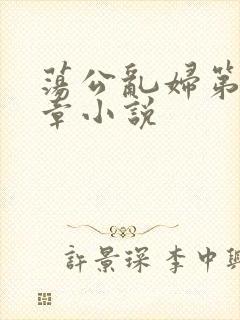 蕩公亂婦第
章小説
許景琛李中興